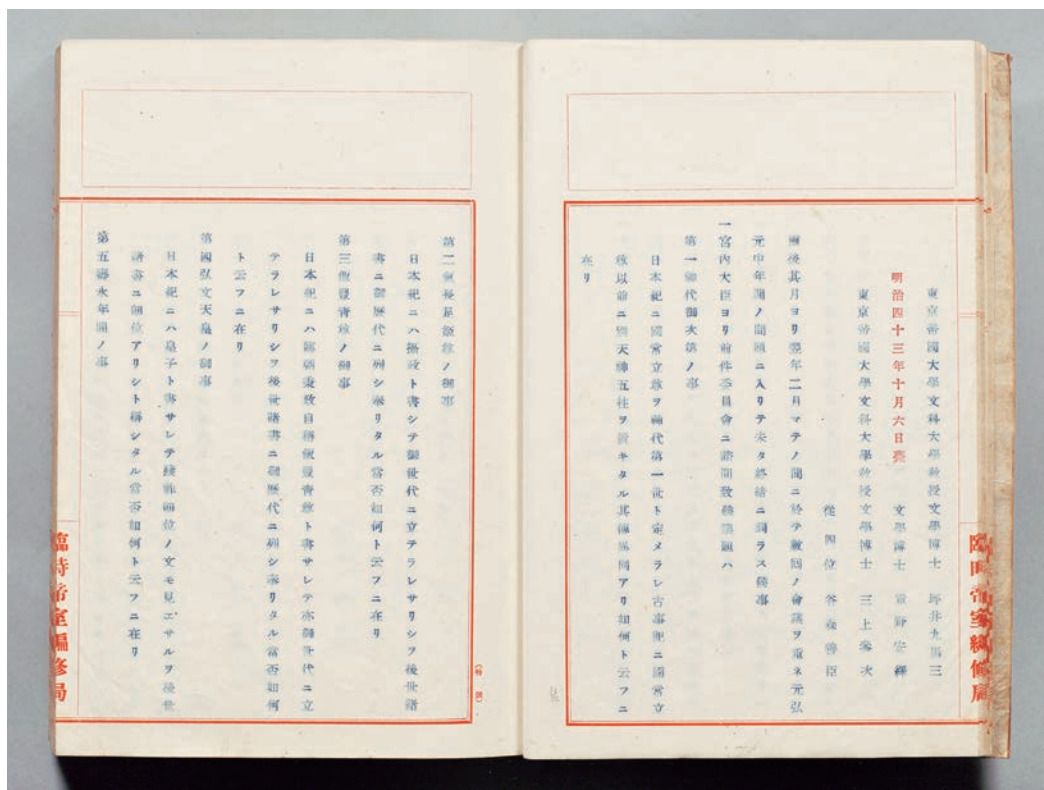 東京帝國大學文科大學教授文學博士 坪井九馬三
明治四十三年十月六日薨 文學博士 重野安繹
東京帝國大學文科大學教授文學博士 三上參次
從四位 谷森善臣
爾後其月ヨリ翌年二月マテノ間ニ於テ數回ノ會議ヲ重ネ元弘
元中年間ノ問題ニ入リテ未タ終結ニ到ラス候事
一宮内大臣ヨリ前件委員會ニ諮問致候箇題ハ
第一神代御次第ノ事
日本紀ニ國常立尊ヲ神代第一世ト定メラレ古事記ニ國常立
尊以前ニ別天神五柱ヲ置キタル其傳異同アリ如何ト云フニ
在リ
第二氣長足姫尊ノ御事
日本紀ニハ攝政ト書シテ御世代ニ立テラレサリシヲ後世諸
書ニ御歴代ニ列シ奉リタル當否如何ト云フニ在リ
第三飯豐青尊ノ御事
日本紀ニハ臨朝秉政自稱飯豐青尊ト書サレテ亦御世代ニ立
テラレサリシヲ後世諸書ニ御歴代ニ列シ奉リタル當否如何
ト云フニ在リ
第四弘文天皇ノ御事
日本紀ニハ皇子ト書サレテ踐祚即位ノ文モ見エサルヲ後世
諸書ニ即位アリシト稱シタル當否如何ト云フニ在リ
第五壽永年間ノ事
臨時帝室編修局
臨時帝室編修局